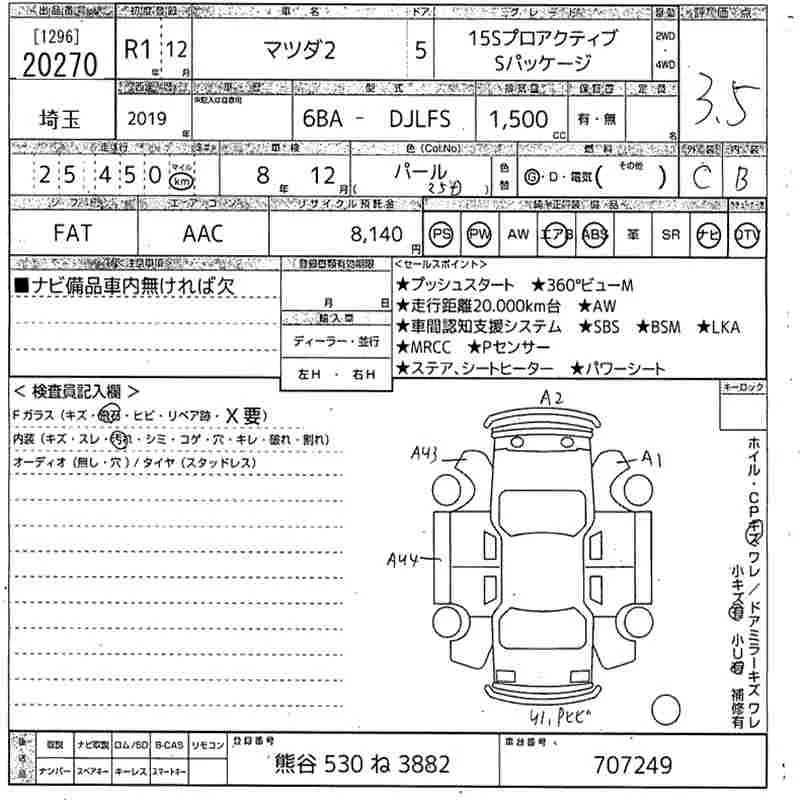 出品番号 初度登録 車名 ドア グレード 駆動 評価点
[1296]
20270
R1 年 12 月
マツダ2
5
15Sプロアクティブ
Sパッケージ
2WD
・
4WD
3.5
車歴 型式 排気量 保証書 定員
埼玉
2019 年
6BA - DJLFS
1,500 cc
有・無
名
走行 車検 色(Col.No) 燃料 外装 内装
25 450 マイル km
8 年 12 月
パール
( 25D )
色替
G・D・電気( その他 )
C
B
シフト エアコン リサイクル預託金 純正評装備品
FAT
AAC
8,140 円
PS PW AW エアB ABS 革 SR ナビ DTV
注意事項
■ナビ備品車内無ければ欠
登録車類有効期限
月 日
輸入車
ディーラー・並行
左H ・ 右H
<セールスポイント>
★プッシュスタート ★360°ビューM
★走行距離20.000km台 ★AW
★車間認知支援システム ★SBS ★BSM ★LKA
★MRCC ★Pセンサー
★ステア、シートヒーター ★パワーシート
キーロック
< 検査員記入欄 >
Fガラス(キズ・飛石・ヒビ・リペア跡・X要)
内装(キズ・スレ・汚れ・シミ・コゲ・穴・キレ・破れ・割れ)
オーディオ(無し・穴)/タイヤ(スタッドレス)
A2
A43
A1
A44
U1,Pヒビ
ホイル・CPキズ ワレ/ドアミラーキズ ワレ
小キズ有 小U有 補修有
後送品
取説 ナビ取説 ロム/SD B-CAS リモコン
ナンバー スペアキー キーレス スマートキー
登録番号
熊谷 530 ね 3882
車台番号
707249